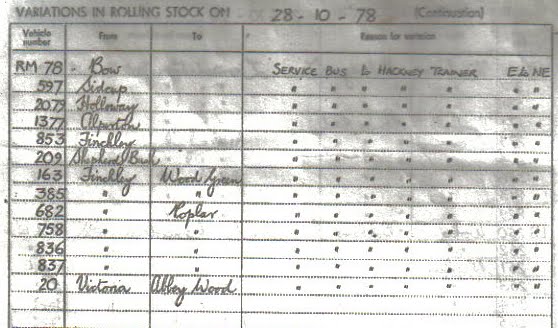 VARIATIONS IN ROLLING STOCK ON 28 - 10 - 78 (Continuation)
Vehicle number From To Reason for variation
RM 78 Bow SERVICE BUS to HACKNEY TRAINER E to NE
597 Sidcup " " " " " " "
2079 Holloway " " " " " " "
1377 Alperton " " " " " " "
853 Finchley " " " " " " "
209 Shepherds Bush " " " " " " "
163 Finchley Wood Green " " " " " " "
385 " " " " " " " " "
682 " Poplar " " " " " " "
758 " " " " " " " " "
836 " " " " " " " " "
837 " " " " " " " " "
20 Victoria Abbey Wood " " " " " " "